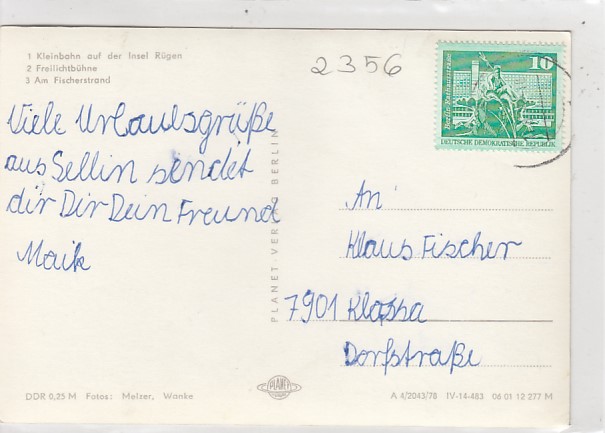 1 Kleinbahn auf der Insel Rügen
2 Freilichtbühne
3 Am Fischerstrand
2356
10
DEUTSCHE DEMOKRATISCHE REPUBLIK
Viele Urlaubsgrüße
aus Sellin sendet
dir Dir Dein Freund
Maik
PLANET-VERLAG BERLIN
An
Klaus Fischer
7901 Klossa
Dorfstraße
DDR 0,25 M Fotos: Melzer, Wanke
PLANET
A 4/2043/78 IV-14-483 06 01 12 277 M